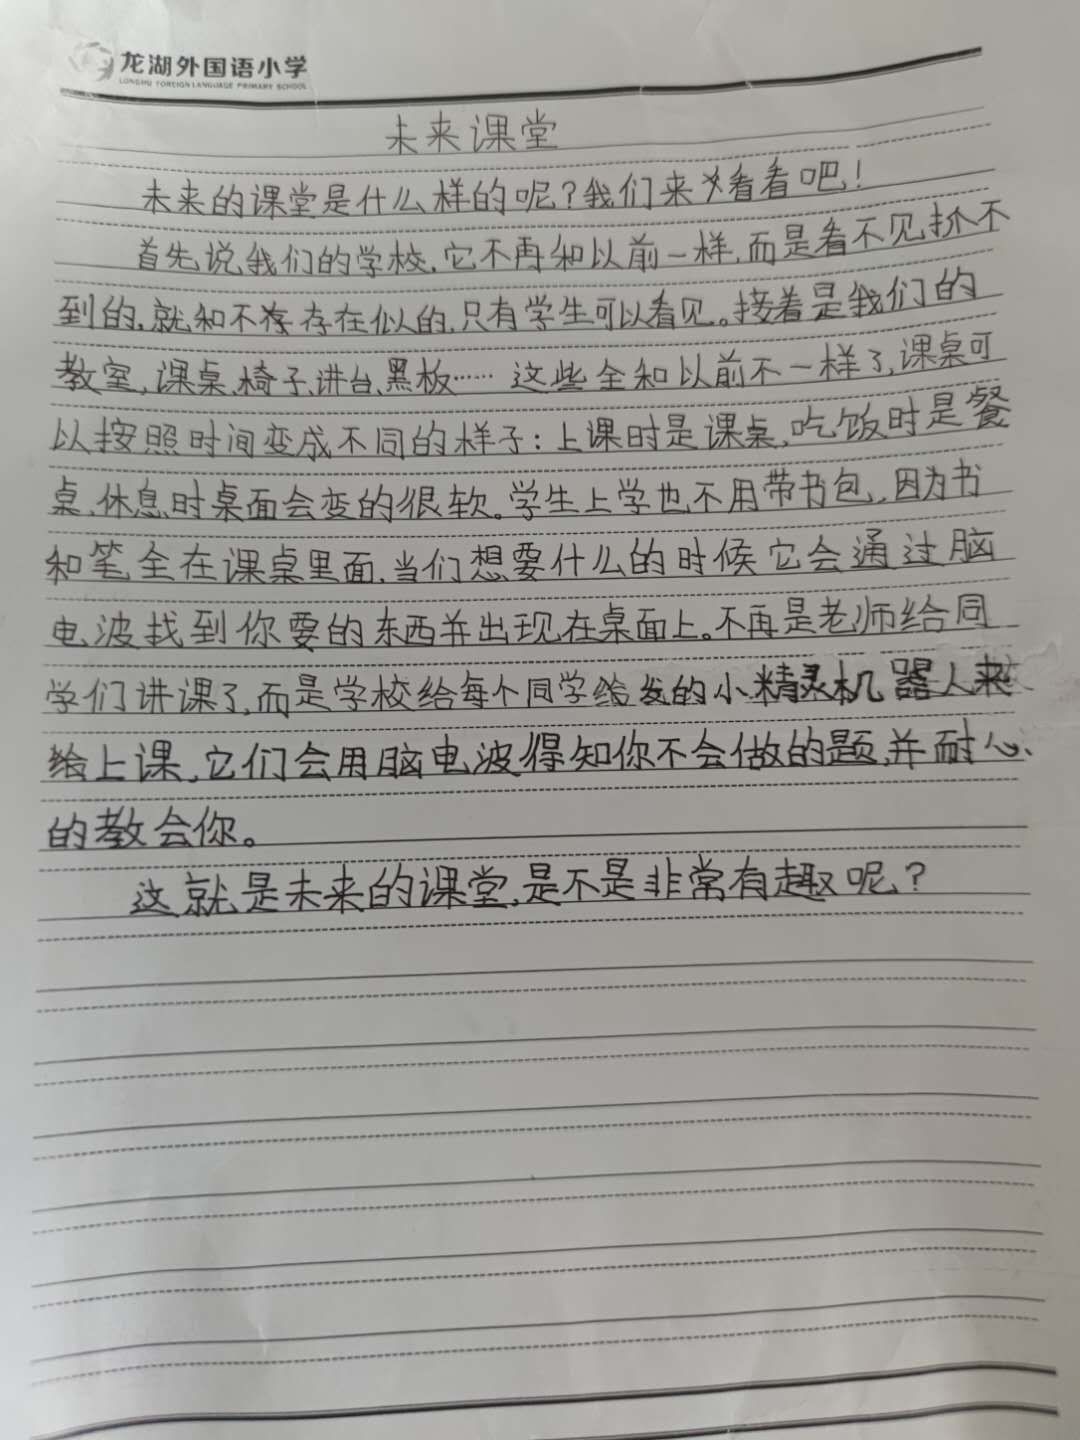 龙湖外国语小学
LONGHU FOREIGN LANGUAGE PRIMARY SCHOOL
未来课堂
未来的课堂是什么样的呢？我们来看看吧！
首先说我们的学校，它不再和以前一样，而是看不见抓不
到的，就和不存在似的，只有学生可以看见。接着是我们的
教室，课桌、椅子、讲台、黑板……这些全和以前不一样了，课桌可
以按照时间变成不同的样子：上课时是课桌，吃饭时是餐
桌，休息时桌面会变的很软。学生上学也不用带书包，因为书
和笔全在课桌里面，当们想要什么的时候它会通过脑
电波找到你要的东西并出现在桌面上。不再是老师给同
学们讲课了，而是学校给每个同学给发的小精灵机器人来
给上课，它们会用脑电波得知你不会做的题，并耐心
的教会你。
这就是未来的课堂，是不是非常有趣呢？